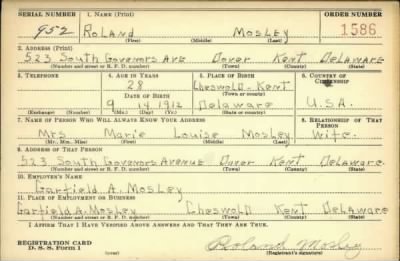 SERIAL NUMBER 1. NAME (Print) ORDER NUMBER
952 ROLAND MOSLEY 1586
(First) (Middle) (Last)
2. ADDRESS (Print)
523 South Governors Ave Dover Kent Delaware
(Number and street or R. F. D. number) (Town) (County) (State)
3. TELEPHONE 4. AGE IN YEARS 5. PLACE OF BIRTH 6. COUNTRY OF CITIZENSHIP
28 Cheswold - Kent
DATE OF BIRTH (Town or county)
9 14 1912 Delaware U.S.A.
(Exchange) (Number) (Mo.) (Day) (Yr.) (State or country)
7. NAME OF PERSON WHO WILL ALWAYS KNOW YOUR ADDRESS 8. RELATIONSHIP OF THAT PERSON
Mrs Marie Louise Mosley Wife.
(Mr., Mrs., Miss) (First) (Middle) (Last)
9. ADDRESS OF THAT PERSON
523 South Govenors Avenue Dover Kent Delaware.
(Number and street or R. F. D. number) (Town) (County) (State)
10. EMPLOYER'S NAME
Garfield A. Mosley
11. PLACE OF EMPLOYMENT OR BUSINESS
Garfield A. Mosley Cheswold Kent Delaware
(Number and street or R. F. D. number) (Town) (County) (State)
I AFFIRM THAT I HAVE VERIFIED ABOVE ANSWERS AND THAT THEY ARE TRUE.
REGISTRATION CARD
D. S. S. Form 1 (over) Roland Mosley
(Registrant's signature)